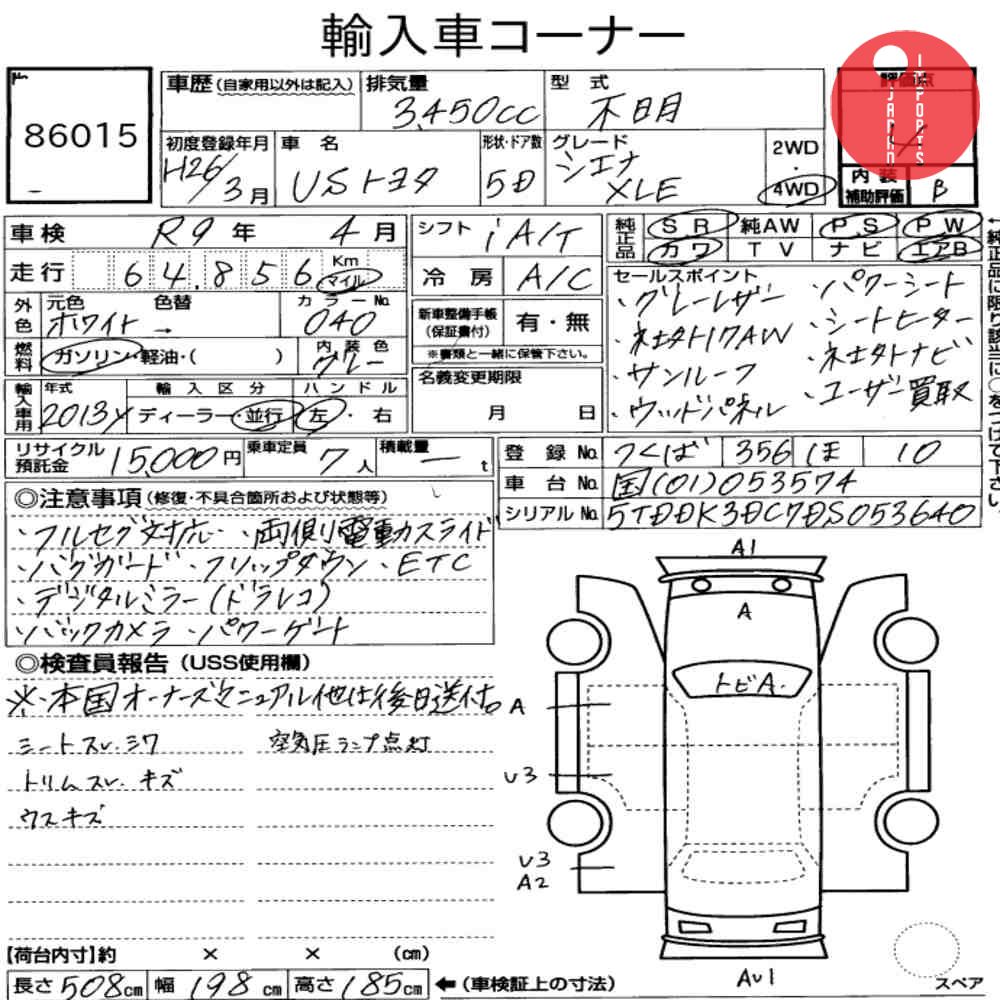 輸入車コーナー
No.
86015
車歴 (自家用以外は記入)
排気量
3,450cc
型式
不明
評価点
4
JAPAN IMPORTS
初度登録年月
H26/3月
車名
USトヨタ
形状・ドア数
5D
グレード
シエナ
XLE
2WD
・
4WD
内装
補助評価
B
車検 R9年 4月
走行 64,856 Km マイル
シフト iA/T
冷房 A/C
純正品
SR 純AW PS PW
カワ TV ナビ エアB
←純正品に限り該当に○をつけて下さい。
外色
元色 ホワイト →
色替
カラーNo. 040
燃料
ガソリン・軽油・( )
内装色 グレー
新車整備手帳
(保証書付)
有・無
※書類と一緒に保管下さい。
セールスポイント
・グレーレザー ・パワーシート
・社外17AW ・シートヒーター
・サンルーフ ・社外ナビ
・ウッドパネル ・ユーザー買取
輸入車用
年式 2013y
輸入区分 ディーラー・並行
ハンドル 左・右
名義変更期限
月 日
リサイクル
預託金
15,000円
乗車定員 7人
積載量 ― t
登録No. つくば 356 ほ 10
車台No. 国(01)053574
シリアルNo. 5TDDK3DC7DS053640
◎注意事項(修復・不具合箇所および状態等)
・フルセグ対応・両側電動スライド
・バグガード・フリップダウン・ETC
・デジタルミラー(ドラレコ)
・バックカメラ・パワーゲート
◎検査員報告 (USS使用欄)
※・本国オーナーズマニュアル他は後日送付。
シートスレ・シワ 空気圧ランプ点灯
トリムスレ・キズ
ウスキズ
A1
A
トビA.
A
U3
U3
A2
AU1
スペア
【荷台内寸】約 × × (cm)
長さ508cm 幅198cm 高さ185cm ←(車検証上の寸法)